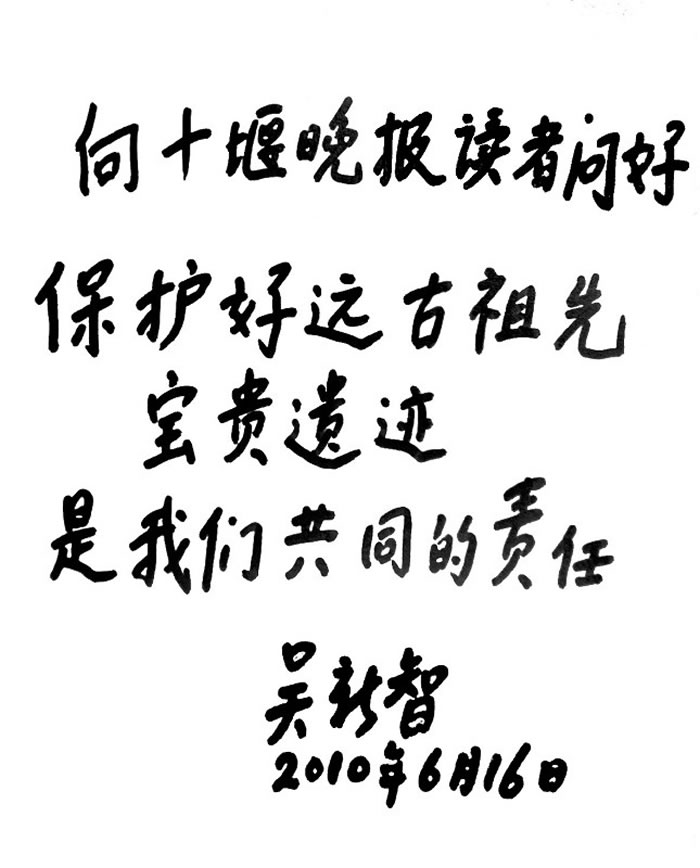 向十堰晚报读者问好
保护好远古祖先
宝贵遗迹
是我们共同的责任
吴新智
2010年6月16日